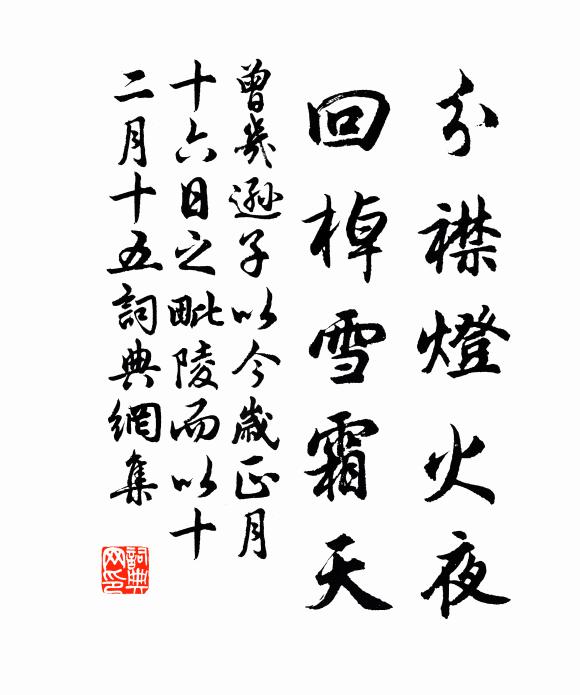 分襟燈火夜
回棹雪霜天
曾幾遜子以今歲正月
十六日之毗陵而以十
二月十五詞典網集
詞典
网印